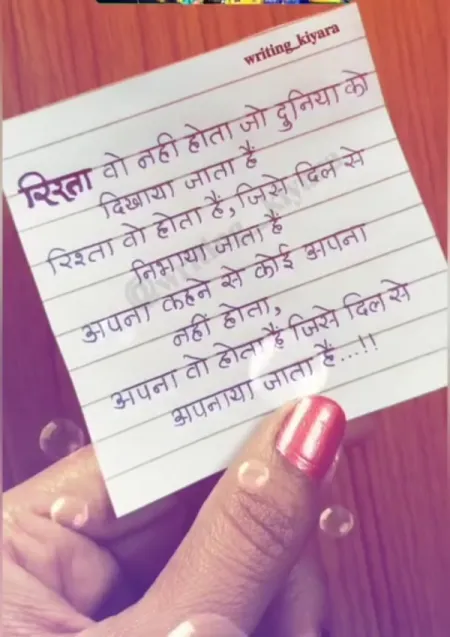 writing_kiyara
रिश्ता वो नही होता जो दुनिया को
दिखाया जाता है
रिश्ता वो होता है, जिसे दिल से
निभाया जाता है
अपना कहने से कोई अपना
नहीं होता,
अपना तो होता है जिसे दिल से
अपनाया जाता है...!!
@writing_kiyara